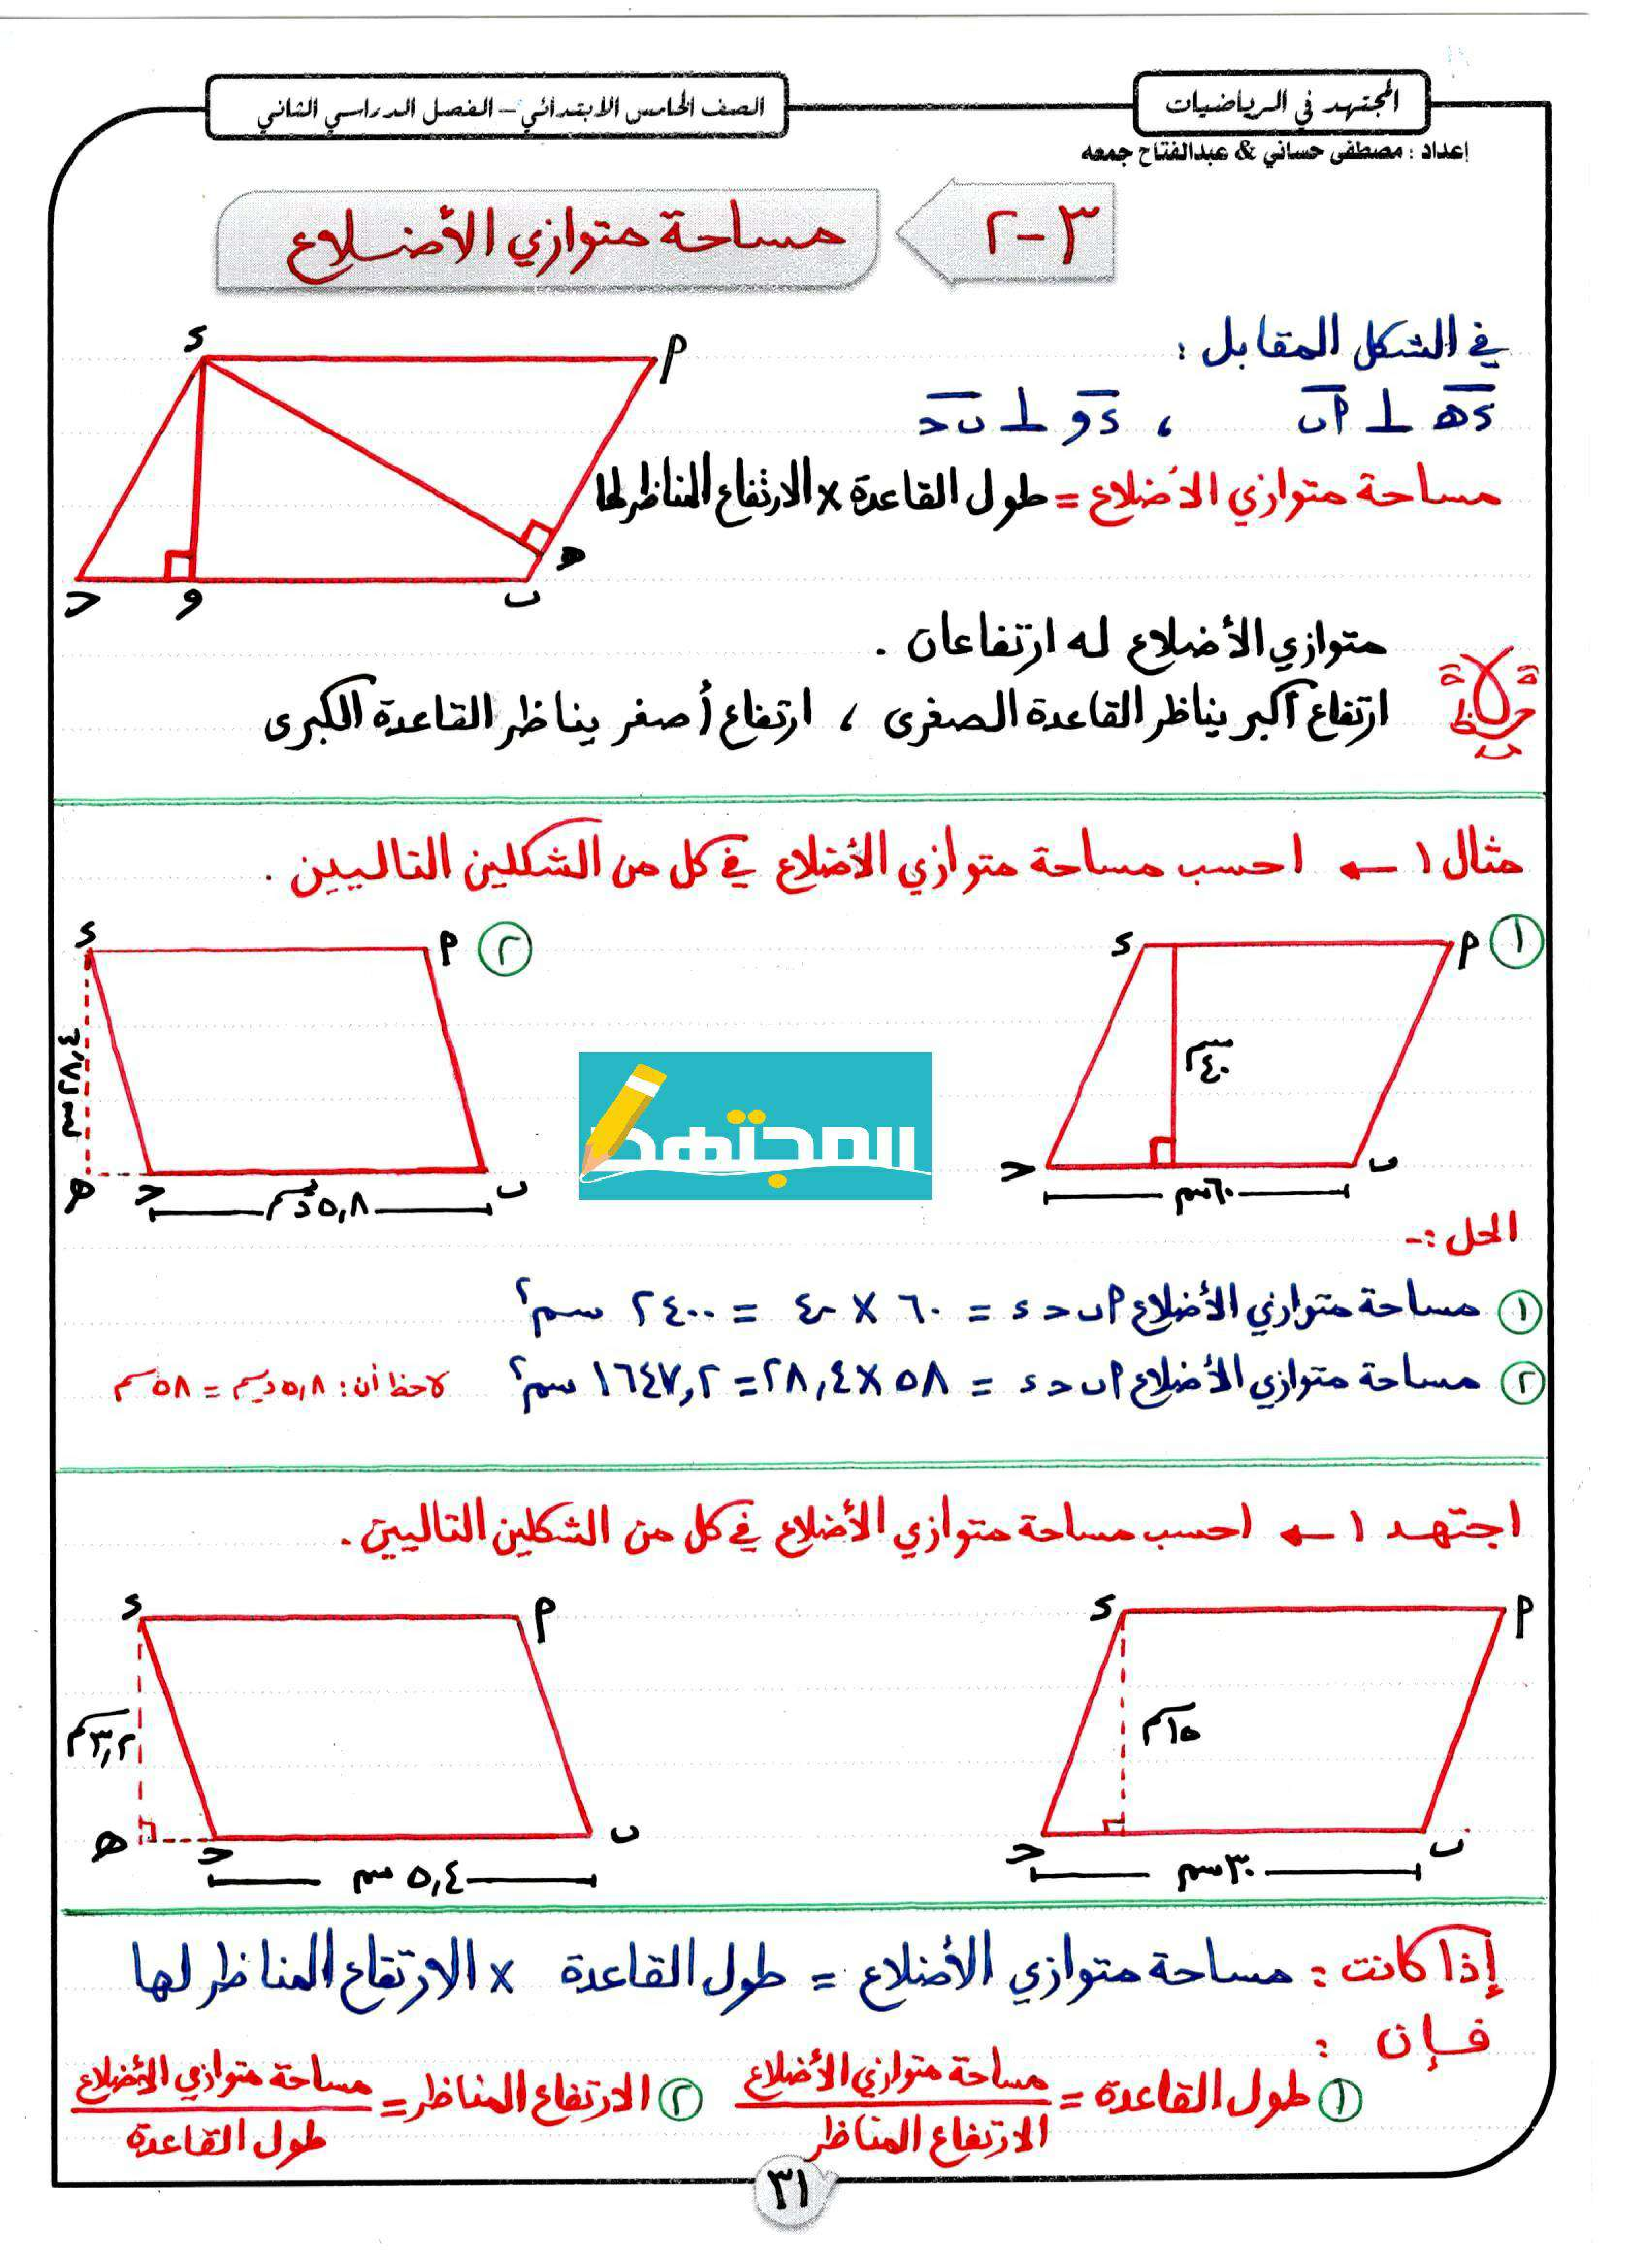 المجتهد في الرياضيات
الصف الخامس الابتدائي – الفصل الدراسي الثاني
إعداد : مصطفى حساني & عبدالفتاح جمعه
٣-٢
مساحة متوازي الأضلاع
في الشكل المقابل :
د هـ ⊥ أ ب ، د و ⊥ ب حـ
مساحة متوازي الأضلاع = طول القاعدة × الارتفاع المناظر لها
أ
د
هـ
ب
و
حـ
ملاحظة
متوازي الأضلاع له ارتفاعان .
ارتفاع أكبر يناظر القاعدة الصغرى ، ارتفاع أصغر يناظر القاعدة الكبرى
مثال ١ ← احسب مساحة متوازي الأضلاع في كل من الشكلين التاليين .
١
أ
د
٤٠ سم
ب
حـ
٦٠ سم
٢
أ
د
ب
حـ
هـ
٥,٨ ديسم
المجتهد
الحل :-
١ مساحة متوازي الأضلاع أ ب حـ د = ٦٠ × ٤٠ = ٢٤٠٠ سم٢
٢ مساحة متوازي الأضلاع أ ب حـ د = ٥٨ × ٢٨,٤ = ١٦٤٧,٢ سم٢ لاحظ أن : ٥,٨ ديسم = ٥٨ سم
اجتهد ١ ← احسب مساحة متوازي الأضلاع في كل من الشكلين التاليين .
أ
د
١٥ سم
ب
حـ
٣٠ سم
أ
د
٣,٢ سم
ب
حـ
هـ
٥,٤ سم
إذا كانت : مساحة متوازي الأضلاع = طول القاعدة × الارتفاع المناظر لها
فإن :
١ طول القاعدة = مساحة متوازي الأضلاع / الارتفاع المناظر
٢ الارتفاع المناظر = مساحة متوازي الأضلاع / طول القاعدة
٣١